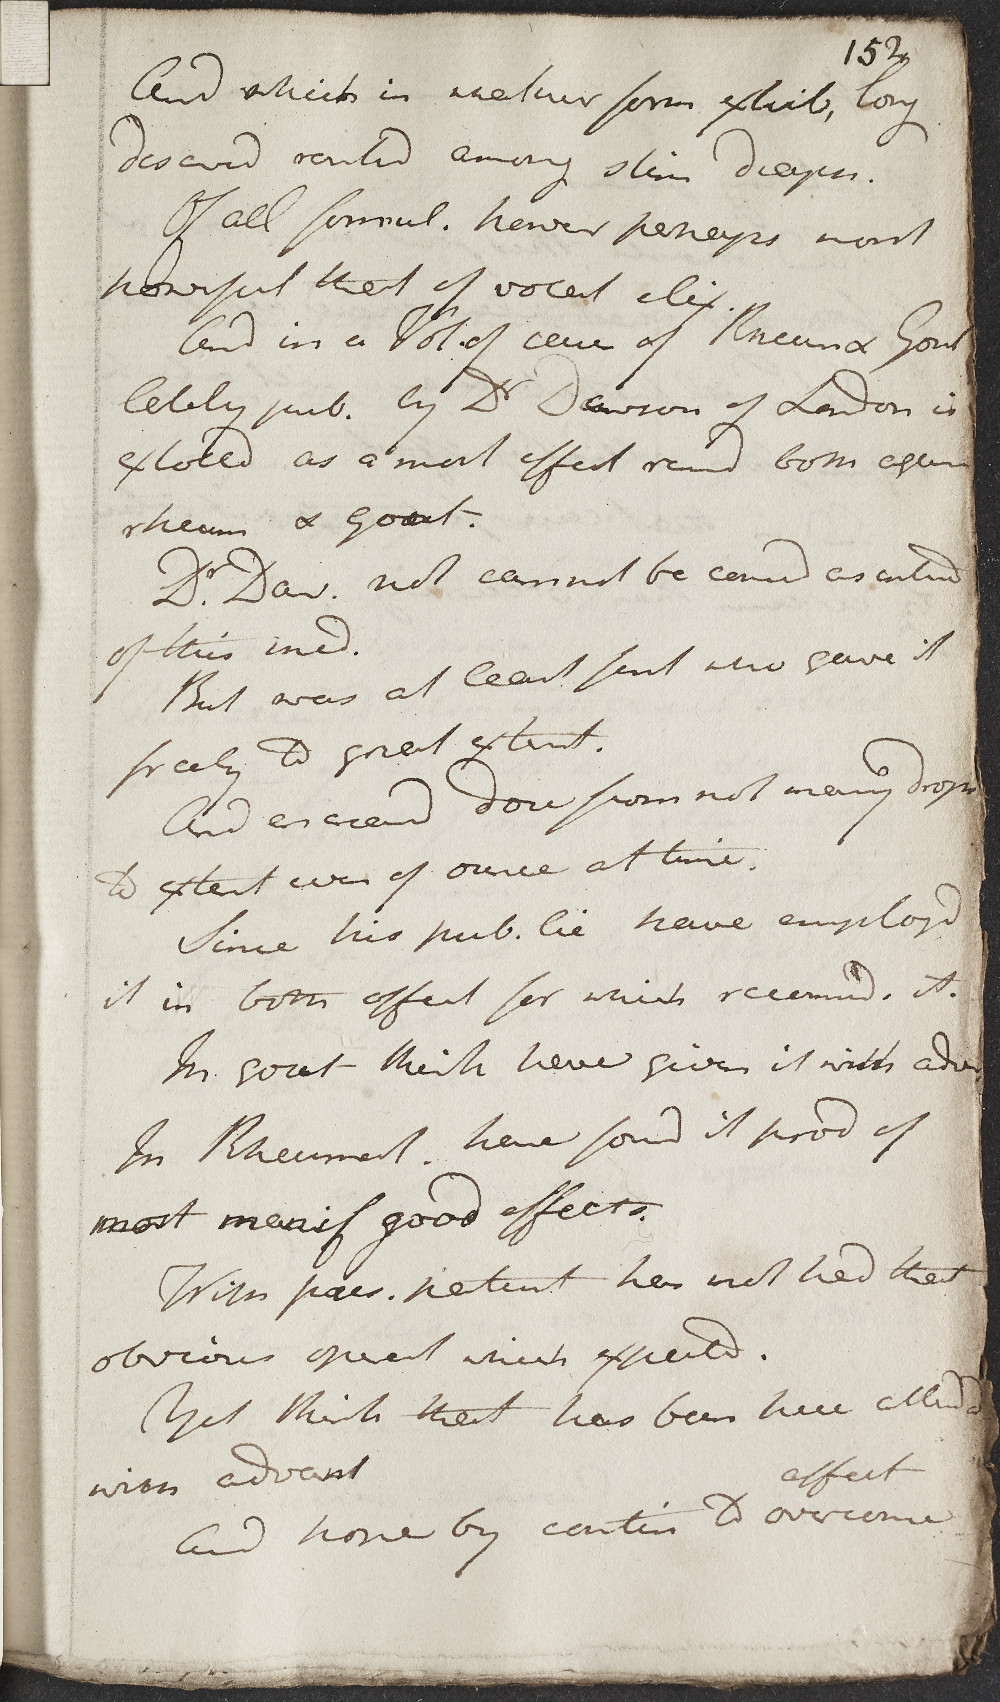 152
And which in whatever form exhib, long
deserved ranked among stim diaph.
Of all formul. however perhaps most
powerful that of volat elix.
And in a Vol. of cases of Rheum & Gout
lately pub. by Dr Dawson of London is
extolled as a most effect remed both again
rheum & gout.
Dr. Daw. not cannot be consid as
of this med.
But was at least first who gave it
freely to great extent.
And encreasd dose from not many drops
to extent even of ounce at time.
Since his pub. have employd
it in both affect for which recommd. it.
In gout think have given it with advan
In Rheumat. have found it prod of
most manif good effects.
With pres. patient has not had that
obvious operat which expected.
Yet think that has been here attended
with advant
And hope by contin to overcome
affect